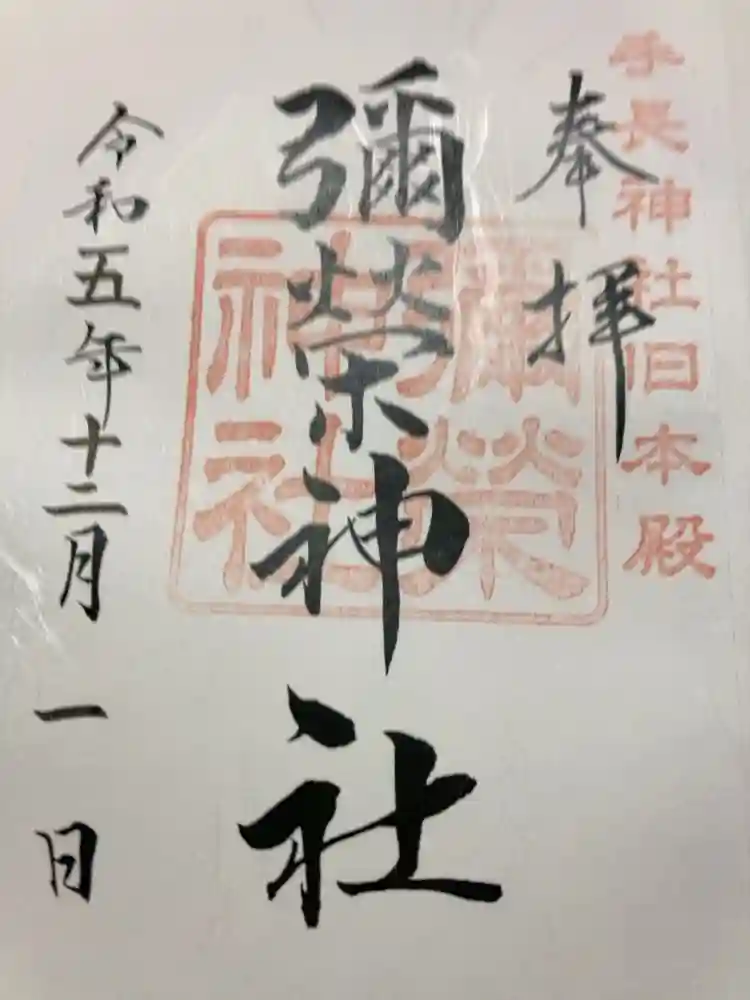 手長神社旧本殿
奉拝
彌榮神社
彌榮
神社
令和五年十二月一日